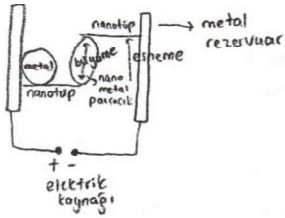 nanotüp
metal
rezervuar
metal
büyüme
esneme
nano
metal
parçacık
nanotüp
+ -
elektrik
kaynağı